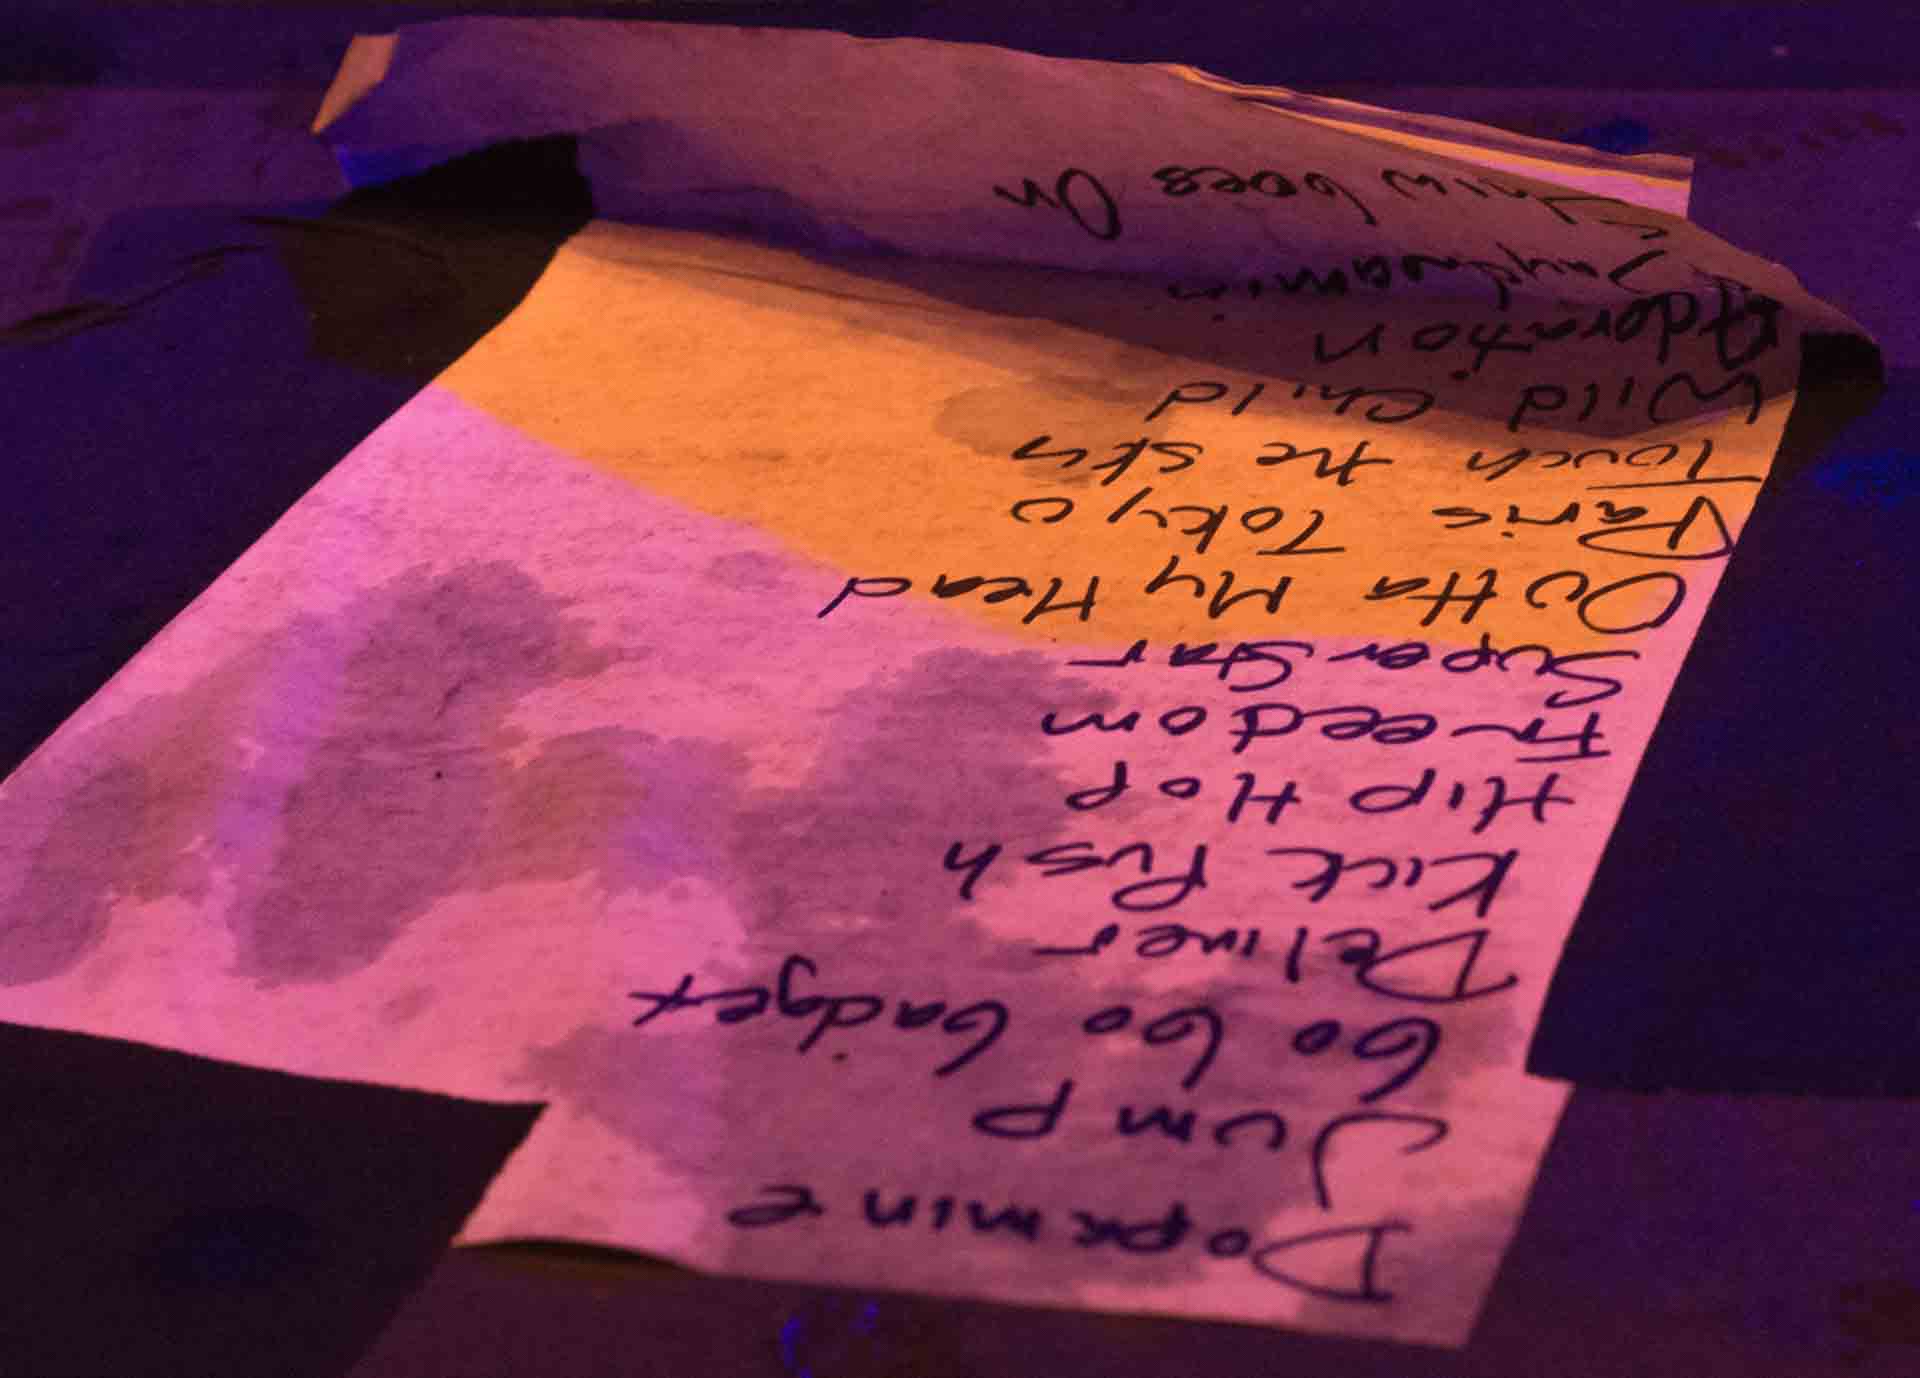 Dopamine
Jump
Go Go Gadget
Deliver
Kick Push
Hip Hop
Freedom
Superstar
Outta My Head
Paris Tokyo
Touch the sky
Wild Child
Adoration
Daydreamin
Show Goes On